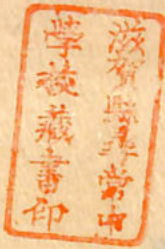 滋賀縣尋常中
學校藏書印